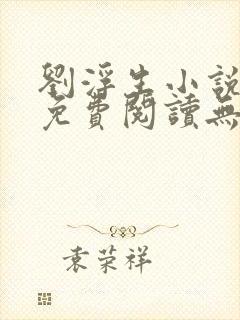 劉浮生小說
免費閱讀無
袁荣祥